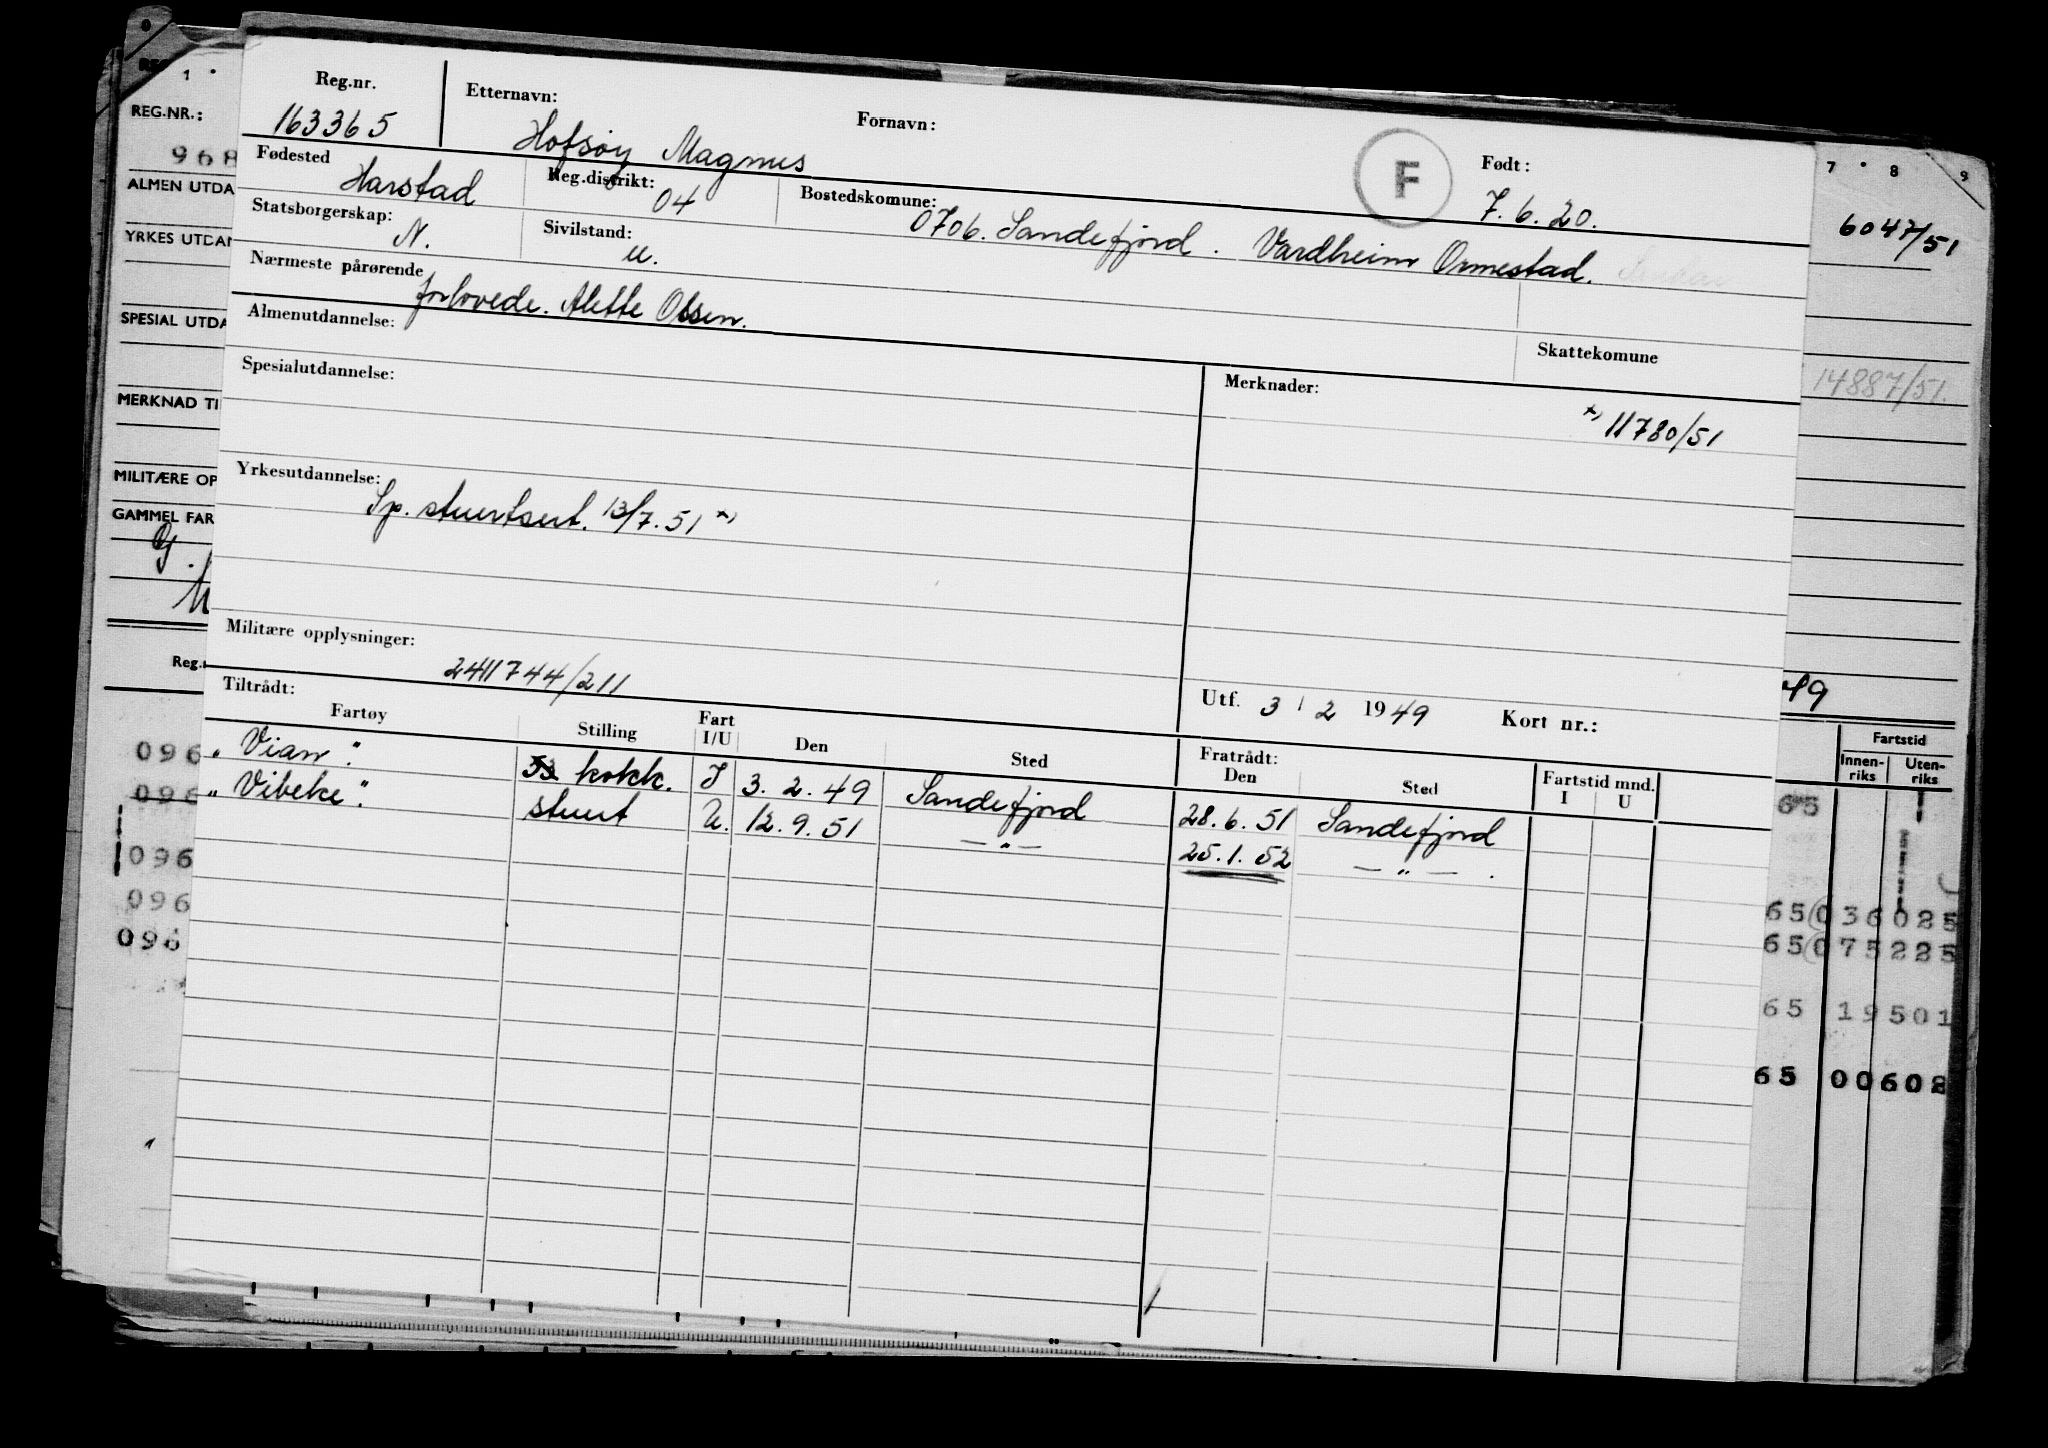 0 1 7 8 9
REG.NR.:
968
ALMEN UTDA
YRKES UTDAN
SPESIAL UTDA
MERKNAD TI
MILITÆRE OP
GAMMEL FAR
G.
Reg.
096
096
096
096
096
Reg.nr. Etternavn: Fornavn: Født:
163365 Hofsøy Magnus F 7.6.20.
Fødested Reg.distrikt: Bostedskomune:
Harstad 04 0706. Sandefjord. Vardheim Ormestad.
Statsborgerskap: Sivilstand:
N. U.
Nærmeste pårørende
forlovede. Alette Olsen.
Almenutdannelse: Skattekomune
Spesialutdannelse: Merknader:
x) 11780/51
Yrkesutdannelse:
Sp. stuertsert. 13/7.51 x)
Militære opplysninger:
2411744/211
Utf. 3 / 2 1949 Kort nr.:
Tiltrådt: Fratrådt:
Fartøy Stilling Fart I/U Den Sted Den Sted Fartstid mnd. I U
"Vian". kokk. I 3.2.49 Sandefjord 28.6.51 Sandefjord
"Vibeke". stuert U. 12.9.51 — " — 25.1.52 — " — .
6047/51
14887/51.
49
Fartstid
Innen-riks Uten-riks
65
65 036025
65 075225
65 19501
65 00602